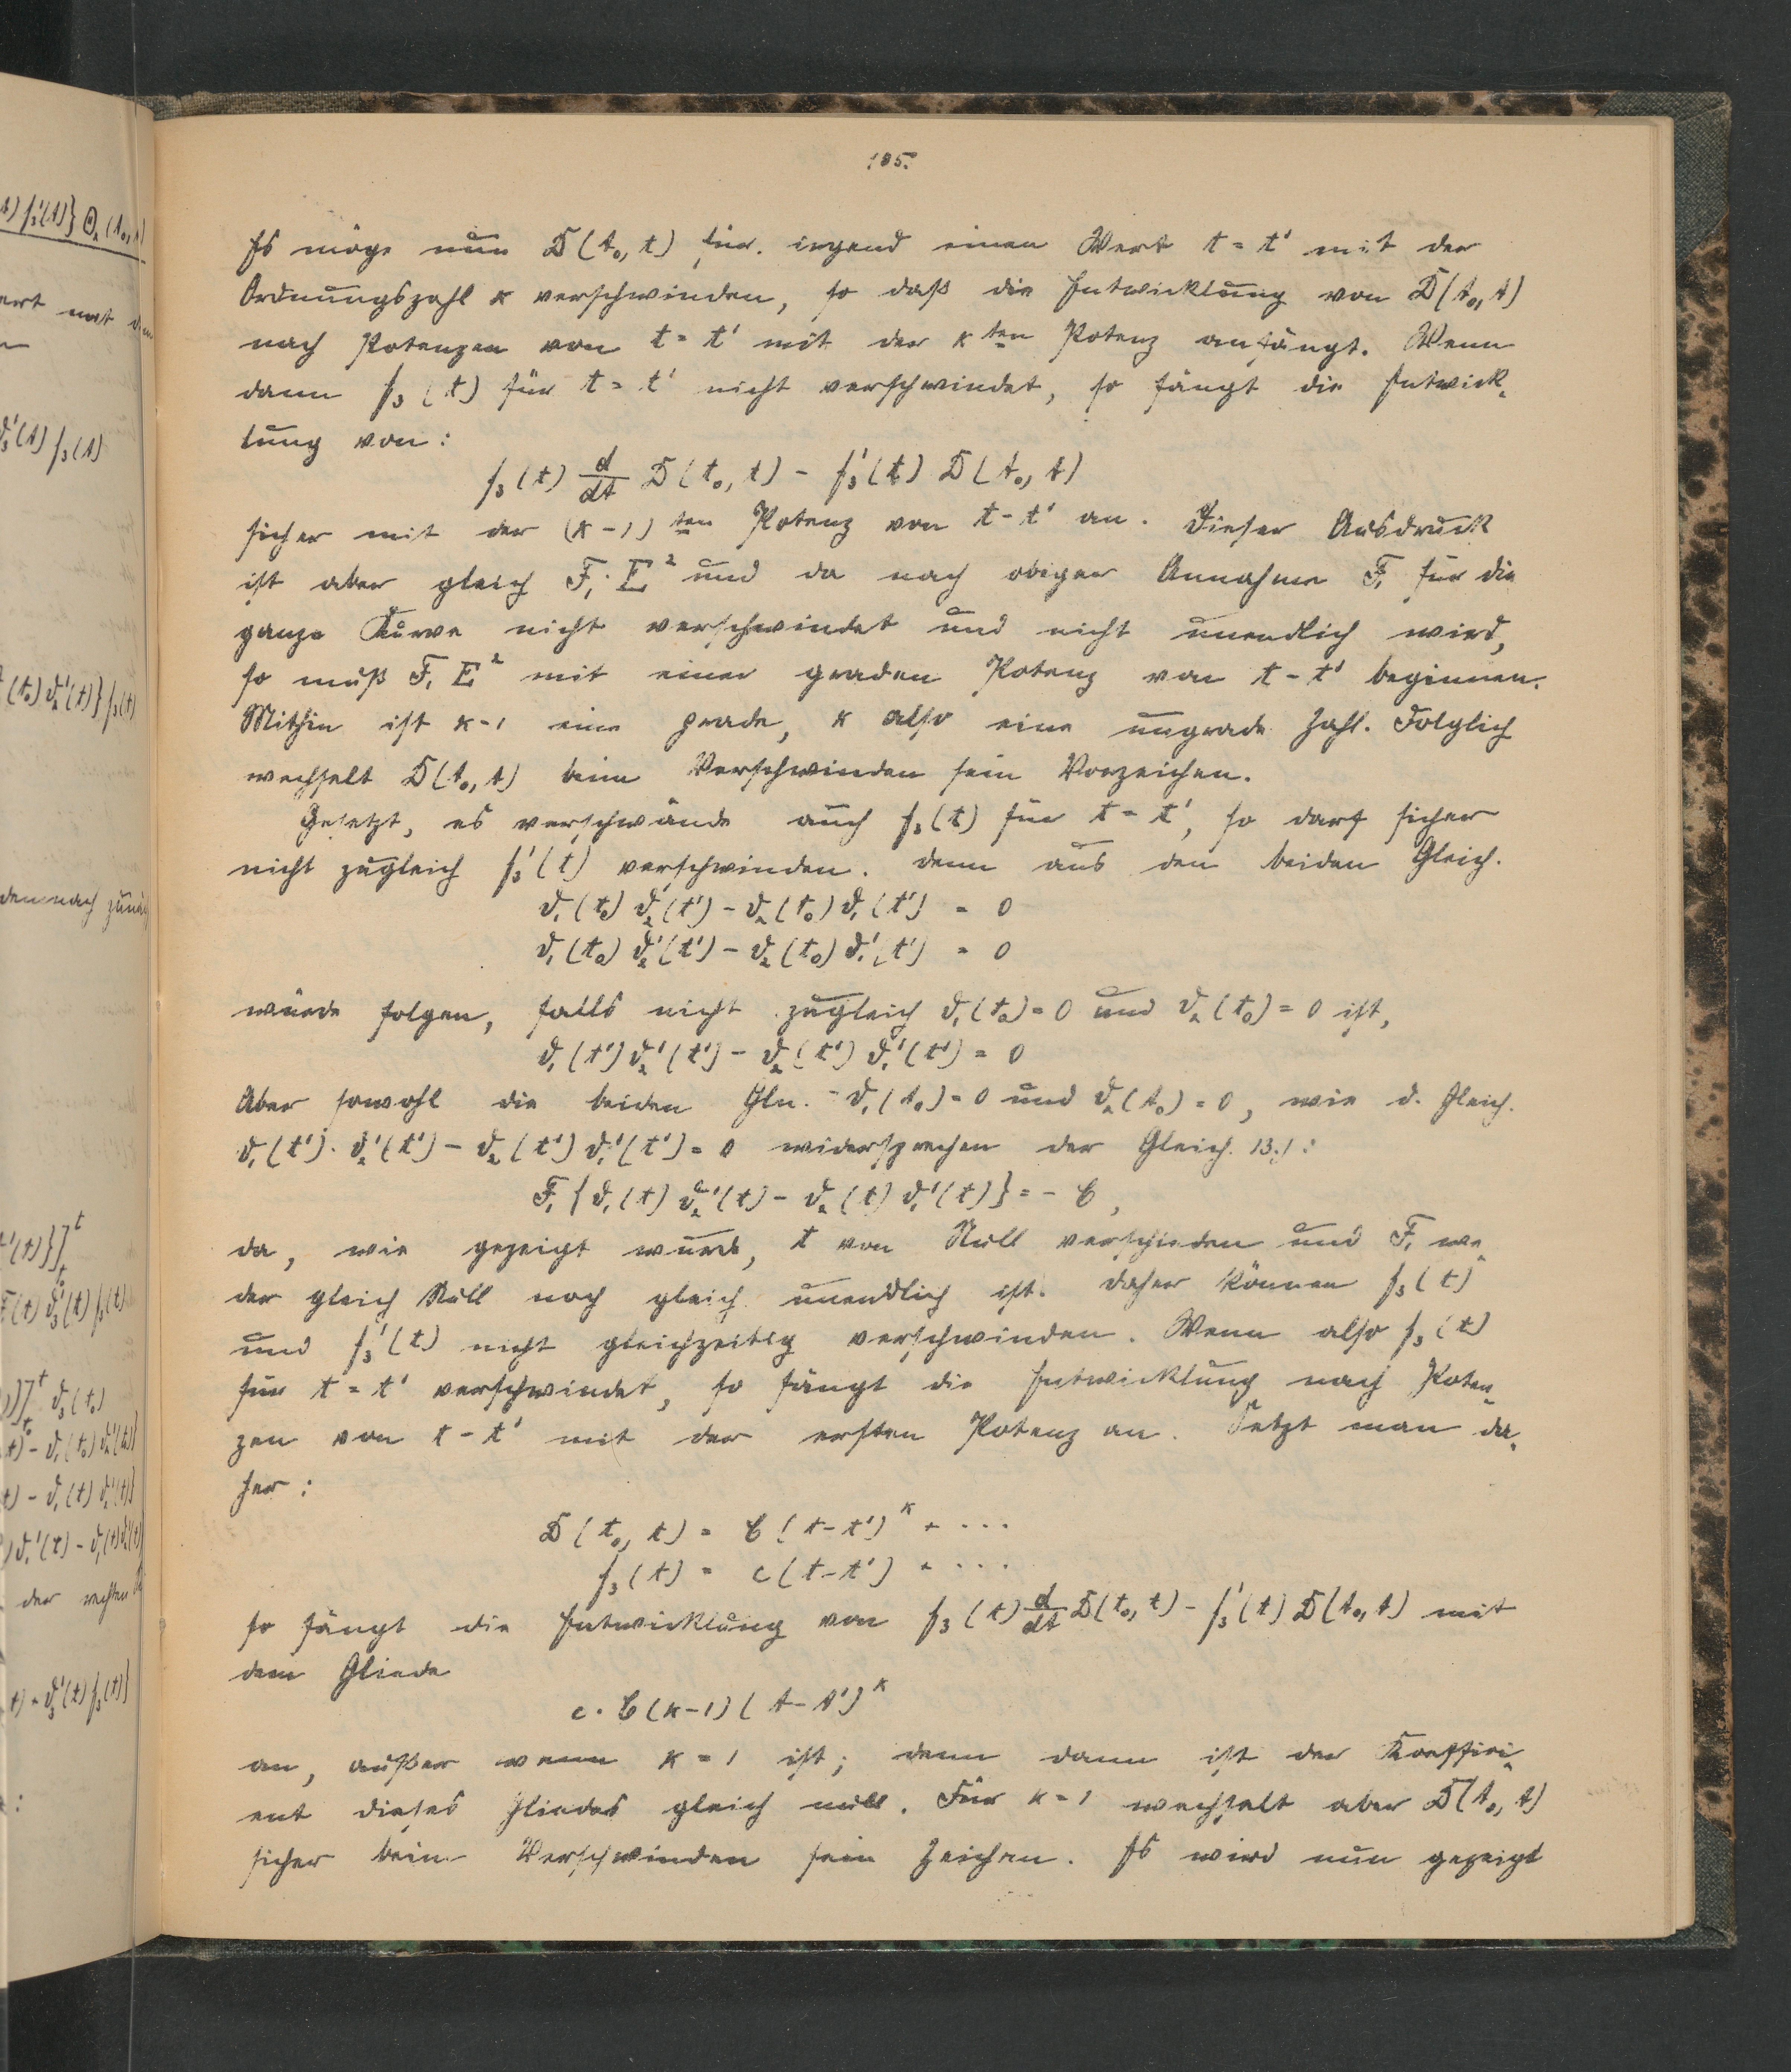 105.
Es möge nun D(t₀, t) für irgend einen Wert t = t' mit der
Ordnungszahl κ verschwinden, so daß die Entwicklung von D(t₀, t)
nach Potenzen von t = t' mit der κ ten Potenz anfängt. Wenn
dann f₃(t) für t = t' nicht verschwindet, so fängt die Entwick-
lung von:
f₃(t) d/dt D(t₀, t) - f₃'(t) D(t₀, t)
sicher mit der (κ-1) ten Potenz von t-t' an. Dieser Ausdruck
ist aber gleich F₁·E² und da nach obiger Annahme F₁ für die
ganze Kurve nicht verschwindet und nicht unendlich wird,
so muß F₁E² mit einer graden Potenz von t-t' beginnen.
Mithin ist κ-1 eine grade, κ also eine ungrade Zahl. Folglich
wechselt D(t₀, t) beim Verschwinden sein Vorzeichen.
Gesetzt, es verschwände auch f₃(t) für t = t', so darf sicher
nicht zugleich f₃'(t) verschwinden. denn aus den beiden Gleich.
ϑ₁(t₀) ϑ₂(t') - ϑ₂(t₀) ϑ₁(t') = 0
ϑ₁(t₀) ϑ₂'(t') - ϑ₂(t₀) ϑ₁'(t') = 0
würde folgen, falls nicht zugleich ϑ₁(t₀) = 0 und ϑ₂(t₀) = 0 ist,
ϑ₁(t') ϑ₂'(t') - ϑ₂(t') ϑ₁'(t') = 0
Aber sowohl die beiden Gln. ϑ₁(t₀) = 0 und ϑ₂(t₀) = 0, wie d. Gleich.
ϑ₁(t')·ϑ₂'(t') - ϑ₂(t') ϑ₁'(t') = 0 widersprechen der Gleich. 13.):
F₁{ϑ₁(t) ϑ₂'(t) - ϑ₂(t) ϑ₁'(t)} = - C,
da, wie gezeigt wurde, t von Null verschieden und F₁ we-
der gleich Null noch gleich unendlich ist. daher können f₃(t)
und f₃'(t) nicht gleichzeitig verschwinden. Wenn also f₃(t)
für t = t' verschwindet, so fängt die Entwicklung nach Poten-
zen von t-t' mit der ersten Potenz an. Setzt man da-
her:
D(t₀, t) = C(t-t')^κ + ···
f₃(t) = c(t-t') + ····
so fängt die Entwicklung von f₃(t) d/dt D(t₀, t) - f₃'(t) D(t₀, t) mit
dem Gliede
c·C(κ-1)(t-t')^κ
an, außer wenn κ = 1 ist; denn dann ist der Koeffizi-
ent dieses Gliedes gleich null. Für κ=1 wechselt aber D(t₀, t)
sicher beim Verschwinden sein Zeichen. Es wird nun gezeigt